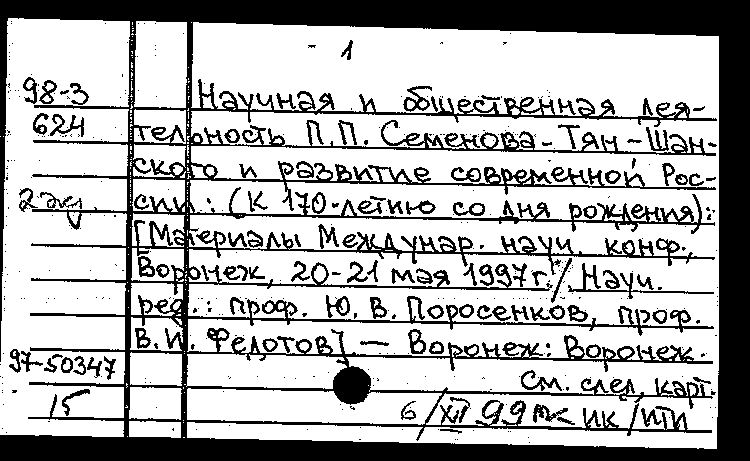 1
98-3
624
2 экз.
97-50347
15
Научная и общественная дея-
тельность П.П. Семенова-Тян-Шан-
ского и развитие современной Рос-
сии: (К 170-летию со дня рождения):
[Материалы Междунар. науч. конф.,
Воронеж, 20-21 мая 1997 г. / Науч.
ред.: проф. Ю. В. Поросенков, проф.
В. И. Федотов]. — Воронеж: Воронеж.
См. след. карт.
6/XII 99 ИК/ИТИ